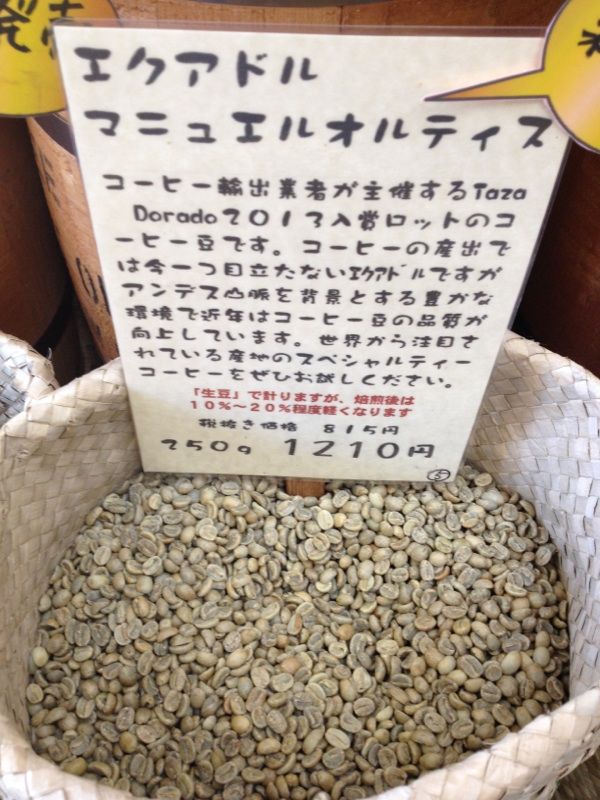 発売
エクアドル
マニュエルオルティス
コーヒー輸出業者が主催するTaza
Dorado2013入賞ロットのコ
ーヒー豆です。コーヒーの産出で
は今一つ目立たないｴｸｱﾄﾞﾙですが
アンデス山脈を背景とする豊かな
環境で近年はコーヒー豆の品質が
向上しています。世界から注目さ
れている産地のスペシャルティー
コーヒーをぜひお試しください。
「生豆」で計りますが、焙煎後は
10%～20%程度軽くなります
税抜き価格 815円
250g 1210円